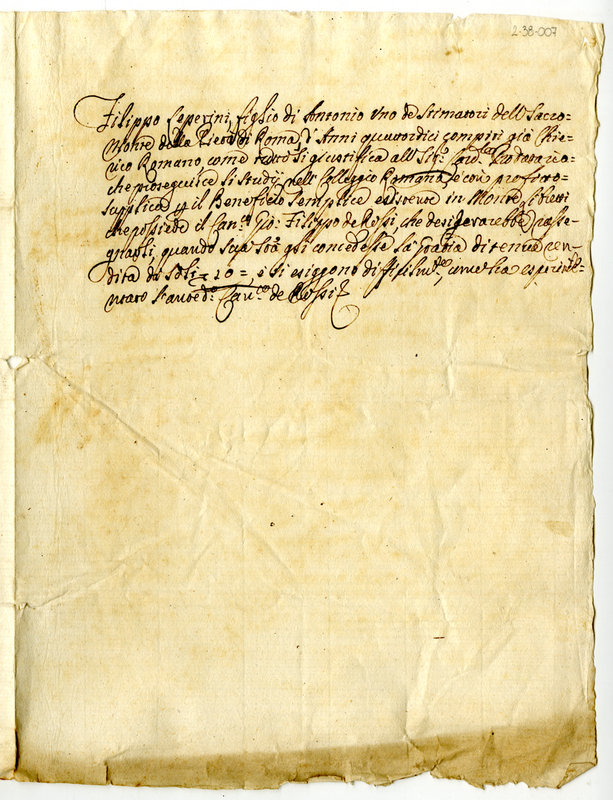 2-38-007
Filippo Seperini, figlio di Antonio Uno de Stimatori dell Sacro=
Monte della Pietà di Roma, d'Anni quattordici compiti già Chie=
rico Romano, come tutto si giustifica all Sig.r Card.le
che proseguisce li studij nell Colleggio Romano, e con profitto=
supplica p il Beneficio Semplice esistente in Monte
che possiede il Can.co Gio: Filippo de Rossi, che desiderarebbe rasse=
gnarli, quando Sua Stà gli concedesse la Gratia di tenue ren=
dita da 20 = e si esiggono difficilm.te, come ha esperim=
entato Can.co de Rossi